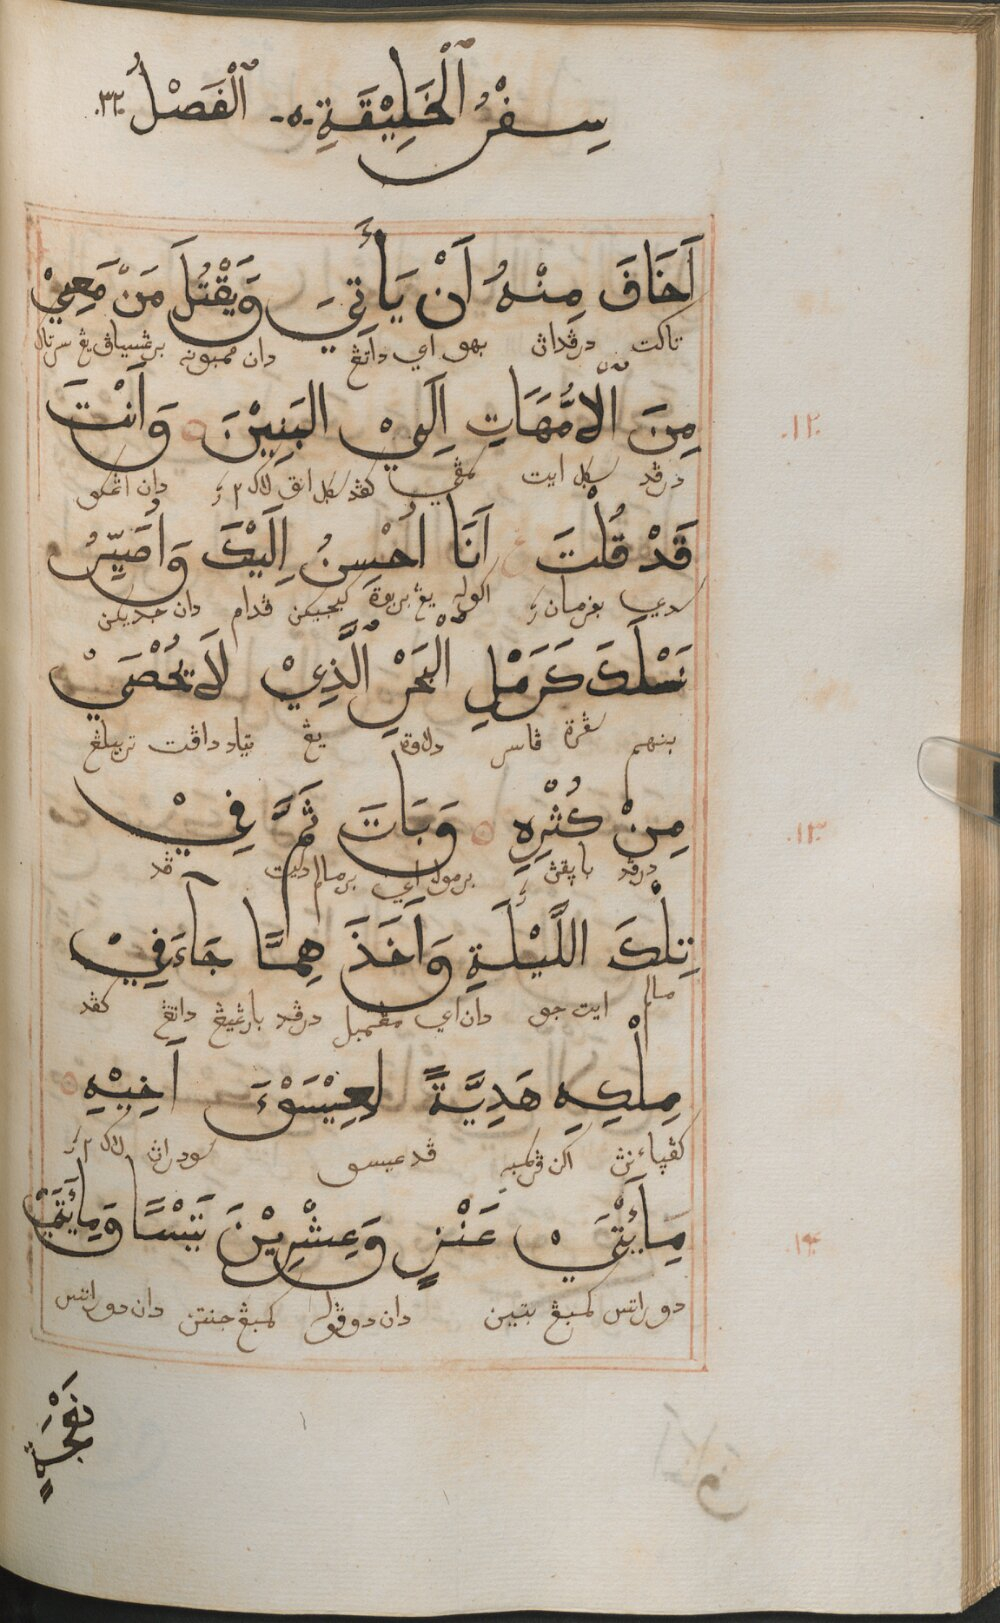 سِفْرُ ٱلْخَلِيْقَةِ -٥- ٱلْفَصْلُ .٣٢.
اَخَافَ مِنْهُ اَنْ يَأْتِيَ وَيَقْتُلَ مَنْ مَعِيْ
تاكت درڤداڽ بهو اي داتڠ دان ممبونه برڠسياڤ يڠ سرتاك
مِنَ ٱلْاُمَّهَاتِ اِلَيْ البَنِيْنَ وَاَنْتَ .١٢.
درڤد سكل ايت كڤد سكل انق لاك٢ دان اڠكو
قَدْ قُلْتَ اَنَا اُحْسِنُ اِلَيْكَ وَاُصَيِّرُ
سدي برفرمان اكوله يڠ بربوة كبجيكن ڤدام دان جديكن
نَسْلَكَ كَرَمْلِ ٱلْبَحْرِ ٱلَّذِيْ لَا يُحْصَيْ
بنهم سڤرة ڤاسر دلاوة يڠ تياد داڤت تربيلڠ
مِنْ كُثْرِهِ وَبَاتَ ثَمَّ فِيْ .١٣.
درڤد باپقڽ برموله اي برمالم دسيت ڤد
تِلْكَ اللَّيْلَةِ وَاَخَذَ مِمَّا جَآءَ فِيْ
مالم ايت جو دان اي مڠمبل درڤد بارڠيڠ داتڠ كڤد
مِلْكِهِ هَدِيَّةً لِعِيْسَوْءَ اَخِيْهِ
كڤپاءنڽ اكن ڤرسمبه ڤد عيسو سودراڽ لاك٢
مِأَيْتَيْ عَنْزٍ وَعِشْرِيْنَ تَيْسًا وَمِأَيْتَيْ .١٤.
دوراتس كمبڠ بتين دان دوڤوله كمبڠ جنتن دان دوراتس
نَعْجَةٍ